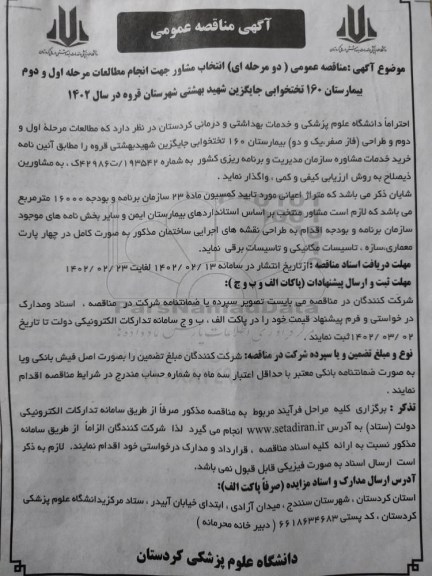 آگهی مناقصه عمومی
موضوع آگهی :مناقصه عمومی ( دو مرحله ای) انتخاب مشاور جهت انجام مطالعات مرحله اول و دوم
بیمارستان ۱۶۰ تختخوابی جایگزین شهید بهشتی شهرستان قروه در سال ۱۴۰۲
احتراماً دانشگاه علوم پزشکی و خدمات بهداشتی و درمانی کردستان در نظر دارد که مطالعات مرحله اول و
دوم و طراحی (فاز صفر،یک و دو) بیمارستان ۱۶۰ تختخوابی جایگزین شهیدبهشتی قروه را مطابق آئین نامه
خرید خدمات مشاوره سازمان مدیریت و برنامه ریزی کشور به شماره ۱۹۳۵۴۲/ت۴۲۹۸۶ک ، به مشاورین
ذیصلاح به روش ارزیابی کیفی و کمی ، واگذار نماید .
شایان ذکر می باشد که متراژ اعیانی مورد تایید کمسیون ماده ۲۳ سازمان برنامه و بودجه ۱۶۰۰۰ مترمربع
می باشد که لازم است مشاور منتخب بر اساس استانداردهای بیمارستان ایمن و سایر بخش نامه های موجود
سازمان برنامه و بودجه اقدام به طراحی نقشه های اجرایی ساختمان مذکور به صورت کامل در چهار پارت
معماری،سازه ، تاسیسات مکانیکی و تاسیسات برقی نماید.
مهلت دریافت اسناد مناقصه :ازتاریخ انتشار در سامانه ۱۴۰۲/۰۲/۱۳ لغایت ۱۴۰۲/۰۲/۲۳
مهلت ثبت و ارسال پیشنهادات (پاکات الف و ب و ج ):
شرکت کنندگان در مناقصه می بایست تصویر سپرده یا ضمانتنامه شرکت در مناقصه ، اسناد ومدارک
در خواستی و فرم پیشنهاد قیمت خود را در پاکت الف ، ب و ج سامانه تدارکات الکترونیکی دولت تا تاریخ
۱۴۰۲/۰۳/۰۲ثبت نمایند .
نوع و مبلغ تضمین و یا سپرده شرکت در مناقصه: شرکت کنندگان مبلغ تضمین را بصورت اصل فیش بانکی ویا
به صورت ضمانتنامه بانکی معتبر با حداقل اعتبار سه ماه به شماره حساب مندرج در شرایط مناقصه اقدام
نمایند .
تذکر : برگزاری کلیه مراحل فرآیند مربوط به مناقصه مذکور صرفاً از طریق سامانه تدارکات الکترونیکی
دولت (ستاد) به آدرس www.setadiran.ir انجام می گیرد لذا شرکت کنندگان الزاماً از طریق سامانه
مذکور نسبت به ارائه کلیه اسناد مناقصه ، قرارداد و مدارک درخواستی خود اقدام نمایند. لازم به ذکر
است ارسال اسناد به صورت فیزیکی قابل قبول نمی باشد.
آدرس ارسال مدارک و اسناد مزایده (صرفاً پاکت الف):
استان کردستان ، شهرستان سنندج ، میدان آزادی ، ابتدای خیابان آبیدر ، ستاد مرکزیدانشگاه علوم پزشکی
کردستان ، کد پستی ۶۶۱۸۶۳۴۶۸۳ ( دبیر خانه محرمانه )
دانشگاه علوم پزشکی کردستان